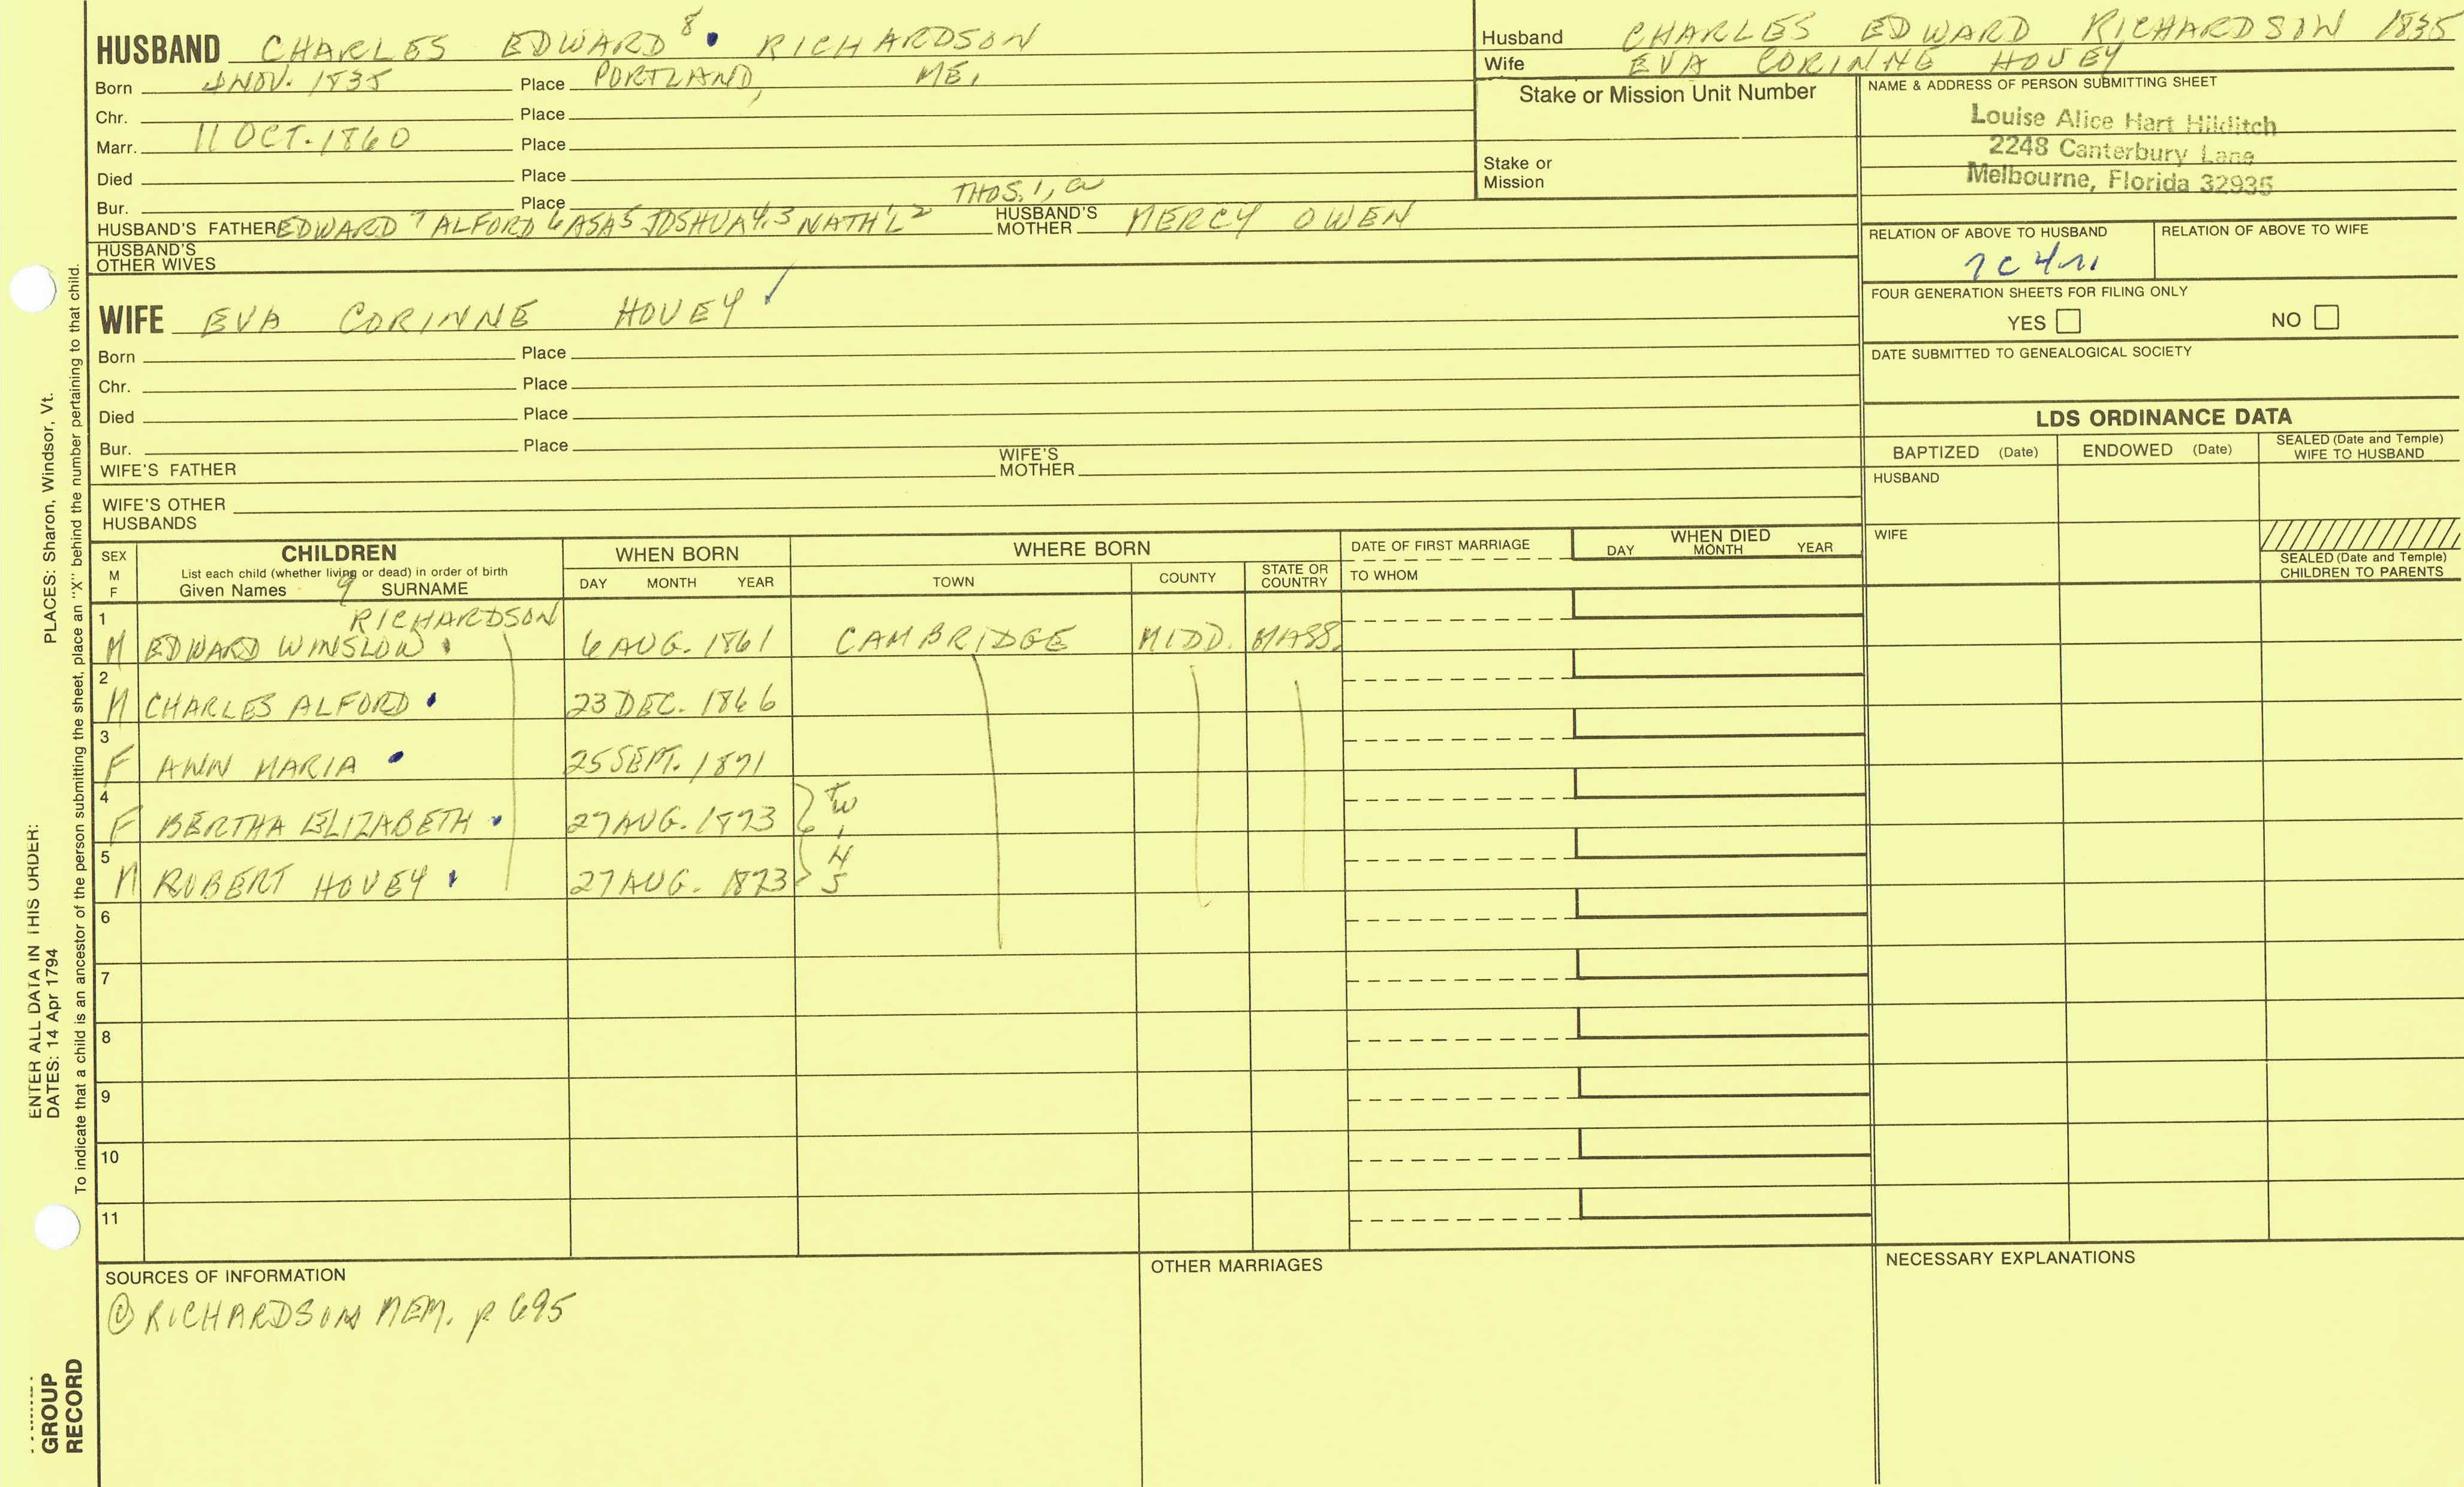 HUSBAND CHARLES EDWARD 8 RICHARDSON
Born 4 NOV. 1835 Place PORTLAND, ME.
Chr. Place
Marr. 11 OCT. 1860 Place
Died Place
Bur. Place THOS. 1, a
HUSBAND'S FATHER EDWARD 7 ALFORD 6 ASA 5 JOSHUA 4,3 NATH'L 2 HUSBAND'S MOTHER MERCY OWEN
HUSBAND'S OTHER WIVES
WIFE EVA CORINNE HOVEY
Born Place
Chr. Place
Died Place
Bur. Place
WIFE'S FATHER WIFE'S MOTHER
WIFE'S OTHER HUSBANDS
Husband CHARLES EDWARD RICHARDSON 1835
Wife EVA CORINNE HOVEY
Stake or Mission Unit Number
Stake or Mission
NAME & ADDRESS OF PERSON SUBMITTING SHEET
Louise Alice Hart Hilditch
2248 Canterbury Lane
Melbourne, Florida 32935
RELATION OF ABOVE TO HUSBAND RELATION OF ABOVE TO WIFE
7C4r
FOUR GENERATION SHEETS FOR FILING ONLY
YES NO
DATE SUBMITTED TO GENEALOGICAL SOCIETY
LDS ORDINANCE DATA
BAPTIZED (Date) ENDOWED (Date) SEALED (Date and Temple) WIFE TO HUSBAND
HUSBAND
WIFE
SEALED (Date and Temple) CHILDREN TO PARENTS
SEX M F CHILDREN WHEN BORN WHERE BORN DATE OF FIRST MARRIAGE WHEN DIED
List each child (whether living or dead) in order of birth
Given Names 9 SURNAME DAY MONTH YEAR TOWN COUNTY STATE OR COUNTRY TO WHOM DAY MONTH YEAR
1 RICHARDSON
M EDWARD WINSLOW 6 AUG. 1861 CAMBRIDGE MIDD. MASS.
2
M CHARLES ALFORD 23 DEC. 1866
3
F ANN MARIA 25 SEPT. 1871
4
F BERTHA ELIZABETH 27 AUG. 1873 TW
5
M ROBERT HOVEY 27 AUG. 1873
6
7
8
9
10
11
SOURCES OF INFORMATION
@ RICHARDSON MEM. p 695
OTHER MARRIAGES
NECESSARY EXPLANATIONS
ENTER ALL DATA IN THIS ORDER:
DATES: 14 Apr 1794 PLACES: Sharon, Windsor, Vt.
To indicate that a child is an ancestor of the person submitting the sheet, place an "X" behind the number pertaining to that child.
GROUP
RECORD